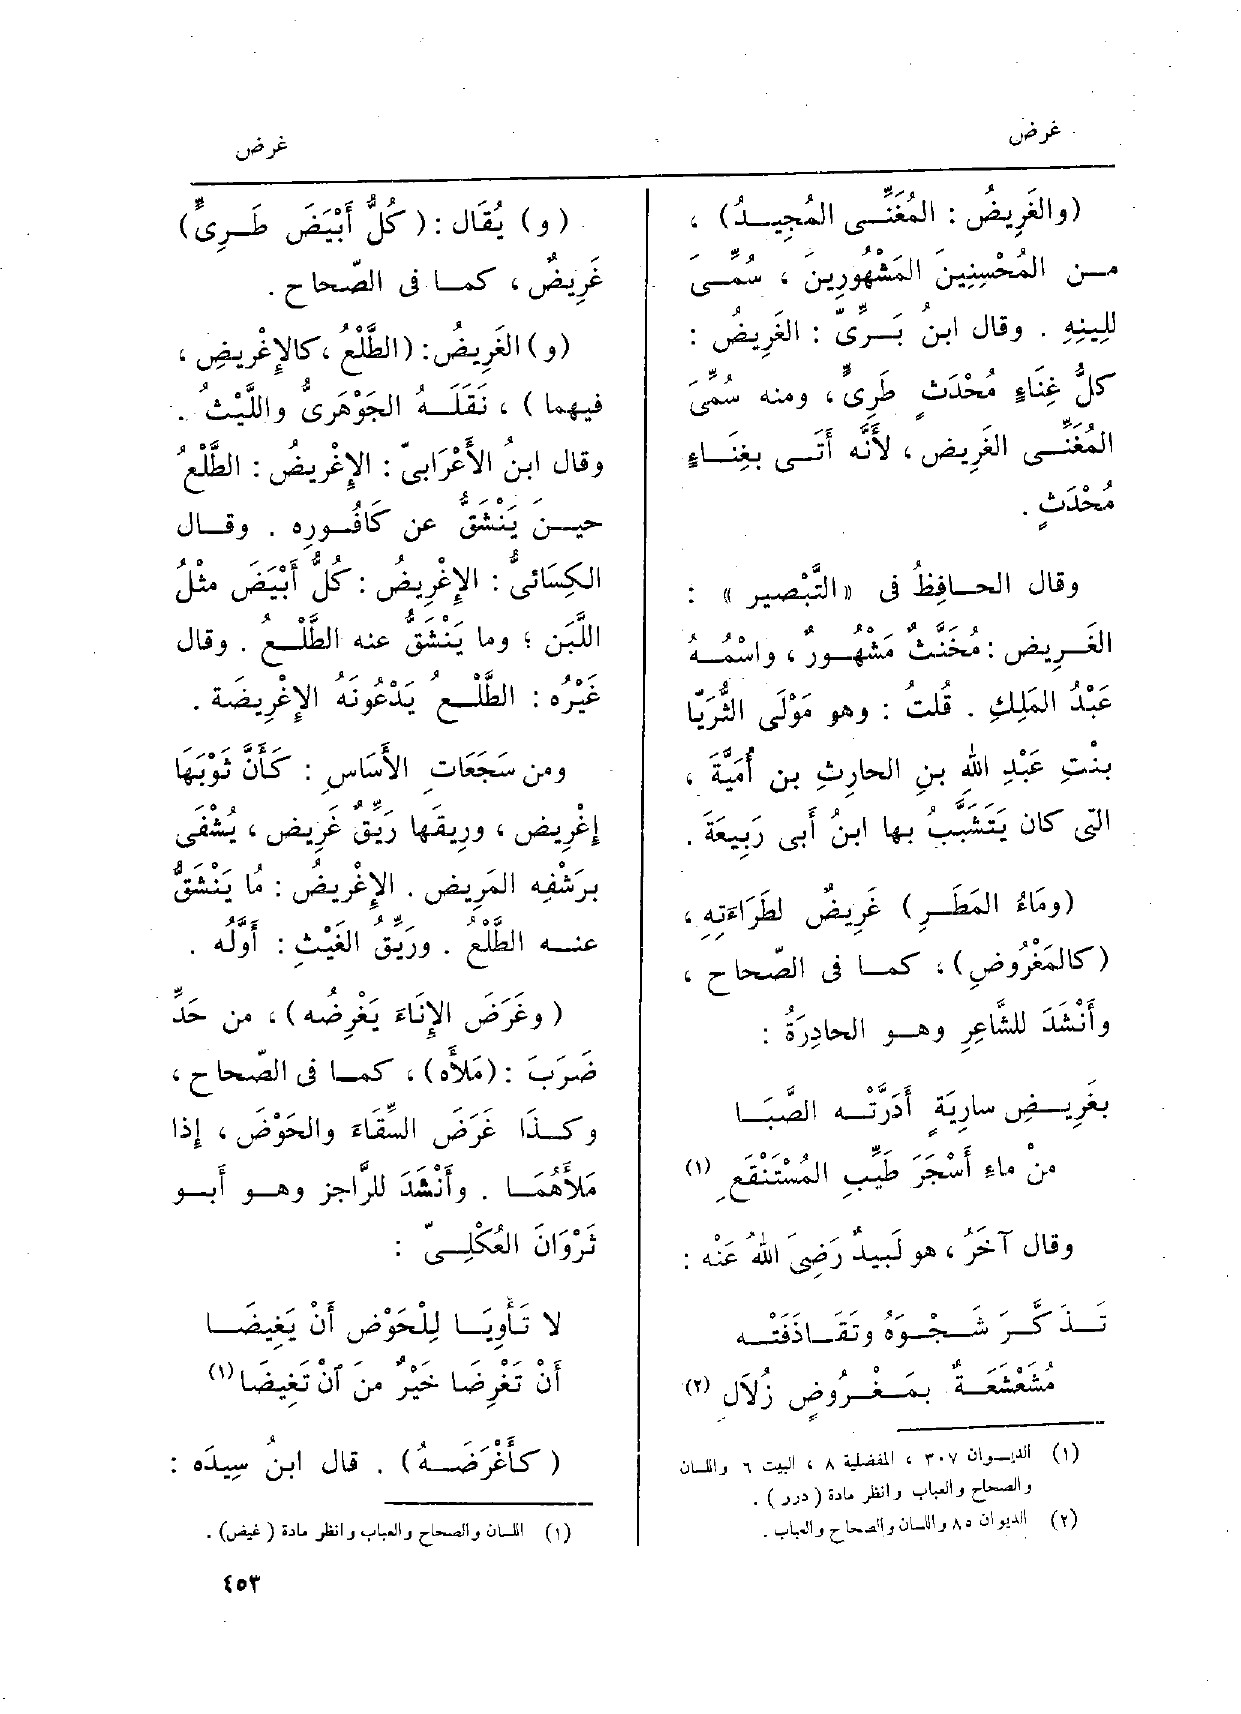 غرض
(والغَرِيضُ : المُغَنِّـى المُجِيـدُ) ،
مـن المُحْسِنِينَ المَشْهُورِينَ ، سُمِّـىَ
لِلِينِهِ . وقال ابنُ بَـرِّىّ : الغَرِيضُ :
كلُّ غِنَاءٍ مُحْدَثٍ طَرِىٌّ ، ومنه سُمِّىَ
المُغَنِّـى الغَرِيض ، لأَنَّه أَتَـى بغِنَـاءٍ
مُحْدَثٍ .
وقال الحـافِظُ فى «التَّبْصير» :
الغَـرِيض : مُخَنَّثٌ مَشْهُـورٌ ، واسْمُـهُ
عَبْدُ المَلِكِ . قُلتُ : وهو مَوْلَى الثُّرَيّا
بنْتِ عَبْدِ اللهِ بنِ الحارِثِ بن أُمَيَّةَ ،
التى كان يَتَشَبَّبُ بها ابنُ أَبى رَبِيعَةَ .
(ومَاءُ المَطَـرِ) غَرِيضٌ لطَرَاءَتِهِ ،
(كالمَغْرُوضِ) ، كمـا فى الصّحاح ،
وأَنْشَدَ للشَّاعِرِ وهـو الحادِرَةُ :
بغَرِيـضِ سارِيَةٍ أَدَرَّتْـه الصَّبَـا
منْ ماءِ أَسْجَرَ طَيِّبِ المُسْتَنْقَعِ (١)
وقال آخَرُ ، هو لَبيدٌ رَضِىَ اللهُ عَنْه :
تَـذَكَّـرَ شَـجْـوَهُ وتَقَـاذَفَتْـه
مُشَعْشَعَـةٌ بـمَـغْـرُوضٍ زُلَالِ (٢)
(١) الديـوان ٣٠٧ ، المفضلية ٨ ، البيت ٦ واللسان
والصحاح والعباب وانظر مادة (درر) .
(٢) الديوان ٨٥ واللسان والصحاح والعباب .
غرض
(و) يُقَال : (كُلُّ أَبْيَضَ طَـرِىٍّ)
غَرِيضٌ ، كمـا فى الصّحاح .
(و) الغَرِيضُ : (الطَّلْعُ ، كالإِغْرِيضِ ،
فيهما) ، نَقَلَـهُ الجَوْهَرىُّ واللَّيْثُ .
وقال ابنُ الأَعْرَابىّ : الإِغْرِيضُ : الطَّلْعُ
حيـنَ يَنْشَقُّ عن كَافُـورِه . وقـال
الكِسَائىُّ : الإِغْرِيضُ : كُلُّ أَبْيَضَ مثْلُ
اللَّبَن ؛ وما يَنْشَقُّ عنه الطَّلْـعُ . وقال
غَيْرُه : الطَّلْـعُ يَدْعُونَهُ الإِغْرِيضَة .
ومن سَجَعَاتِ الأَسَاسِ : كَأَنَّ ثَوْبَهَا
إِغْرِيض ، ورِيقَها رَيِّقُ غَرِيض ، يُشْفَى
برَشْفِه المَرِيض . الإِغْرِيضُ : مَا يَنْشَقُّ
عنـه الطَّلْع . ورَيِّقُ الغَيْثِ : أَوَّلُه .
(وغَرَضَ الإِنَاءَ يَغْرِضُه) ، من حَدِّ
ضَرَبَ : (مَلأَه) ، كمـا فى الصّحاح ،
وكـذَا غَرَضَ السِّقَاءَ والحَوْضَ ، إذا
مَلأَهُمَـا . وأَنْشَدَ للرَّاجز وهـو أَبـو
ثَرْوَانَ العُكْلِـىّ :
لا تَـأْوِيَـا لِلْحَوْضِ أَنْ يَغِيضَـا
أَنْ تَغْرِضَا خَيْرٌ منَ آنْ تَغِيضَا (١)
(كأَغْرَضَـهُ) . قال ابنُ سِيدَه :
(١) اللسان والصحاح والعباب وانظر مادة (غيض) .
٤٥٣